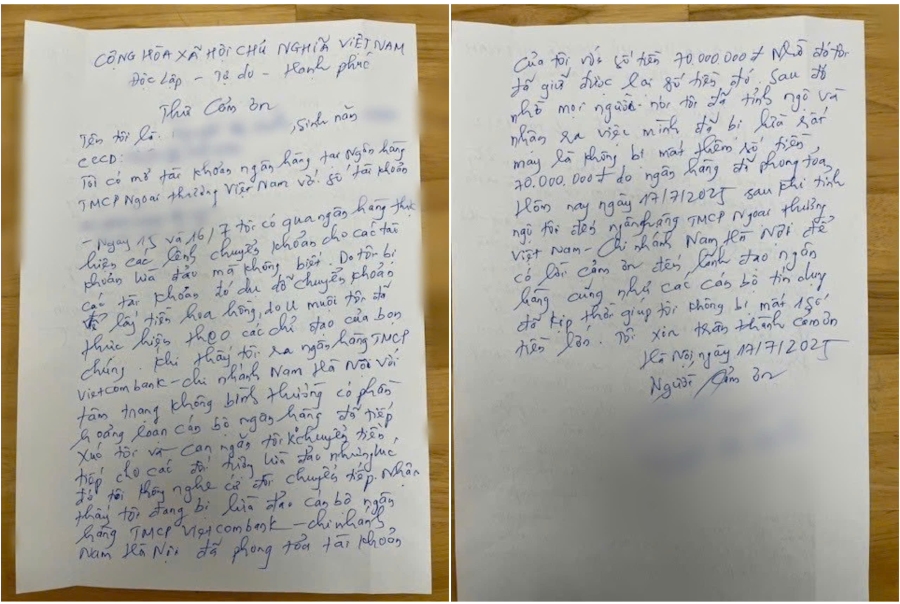 CỘNG HÒA XÃ HỘI CHỦ NGHĨA VIỆT NAM
Độc Lập - Tự do - Hạnh phúc
Thư Cảm ơn
Tên tôi là. , sinh năm
CCCD:
Tôi có mở tài khoản ngân hàng tại Ngân hàng
TMCP Ngoại thương Việt Nam với số tài khoản
- Ngày 15 và 16/7 tôi có qua ngân hàng thực
hiện các lệnh chuyển khoản cho các tài
khoản lừa đảo mà không biết. Do tôi bị
các tài khoản đó dụ dỗ chuyển khoản
để lấy tiền hoa hồng, do u muội tôi đã
thực hiện theo các chỉ đạo của bọn
chúng. Khi thấy tôi ra ngân hàng TMCP
Vietcombank - chi nhánh Nam Hà Nội với
tâm trạng không bình thường có phần
hoảng loạn cán bộ ngân hàng đã tiếp
xúc tôi và can ngăn tôi k chuyển tiền
tiếp cho các đối tượng lừa đảo nhưng lúc
đó tôi không nghe cứ đòi chuyển tiếp. Nhận
thấy tôi đang bị lừa đảo cán bộ ngân
hàng TMCP Vietcombank - chi nhánh
Nam Hà Nội đã phong tỏa tài khoản
Của tôi với số tiền 70.000.000đ Nhờ đó tôi
đã giữ được lại số tiền đó. Sau đó
nhờ mọi người nói tôi đã tỉnh ngộ và
nhận ra việc mình đã bị lừa rất
may là không bị mất thêm số tiền
70.000.000đ do ngân hàng đã phong tỏa.
Hôm nay ngày 17/7/2025 sau khi tỉnh
ngộ tôi đến ngân hàng TMCP Ngoại thương
Việt Nam - Chi nhánh Nam Hà Nội để
có lời cảm ơn đến lãnh đạo ngân
hàng cũng như các cán bộ tín dụng
đã kịp thời giúp tôi không bị mất 1 số
tiền lớn. Tôi xin trân thành cảm ơn
Hà Nội, ngày 17/7/2025
Người cảm ơn